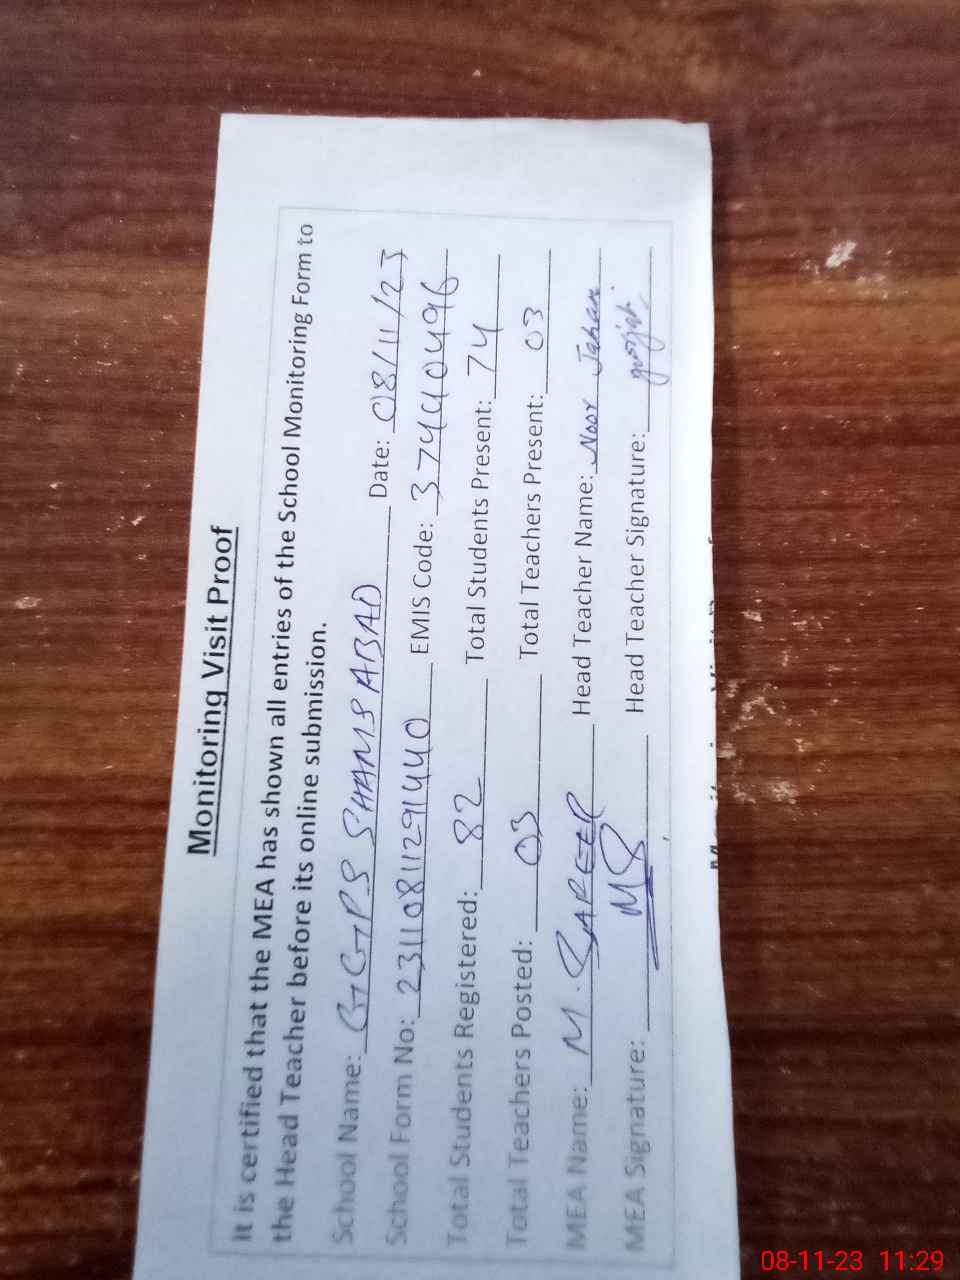 Monitoring Visit Proof
It is certified that the MEA has shown all entries of the School Monitoring Form to
the Head Teacher before its online submission.
School Name: GGPS SHAMSABAD Date: 08/11/23
School Form No: 23110811291440 EMIS Code: 37440496
Total Students Registered: 82 Total Students Present: 74
Total Teachers Posted: 03 Total Teachers Present: 03
MEA Name: M. Head Teacher Name: Noor Jahan
MEA Signature: MS Head Teacher Signature:
08-11-23 11:29